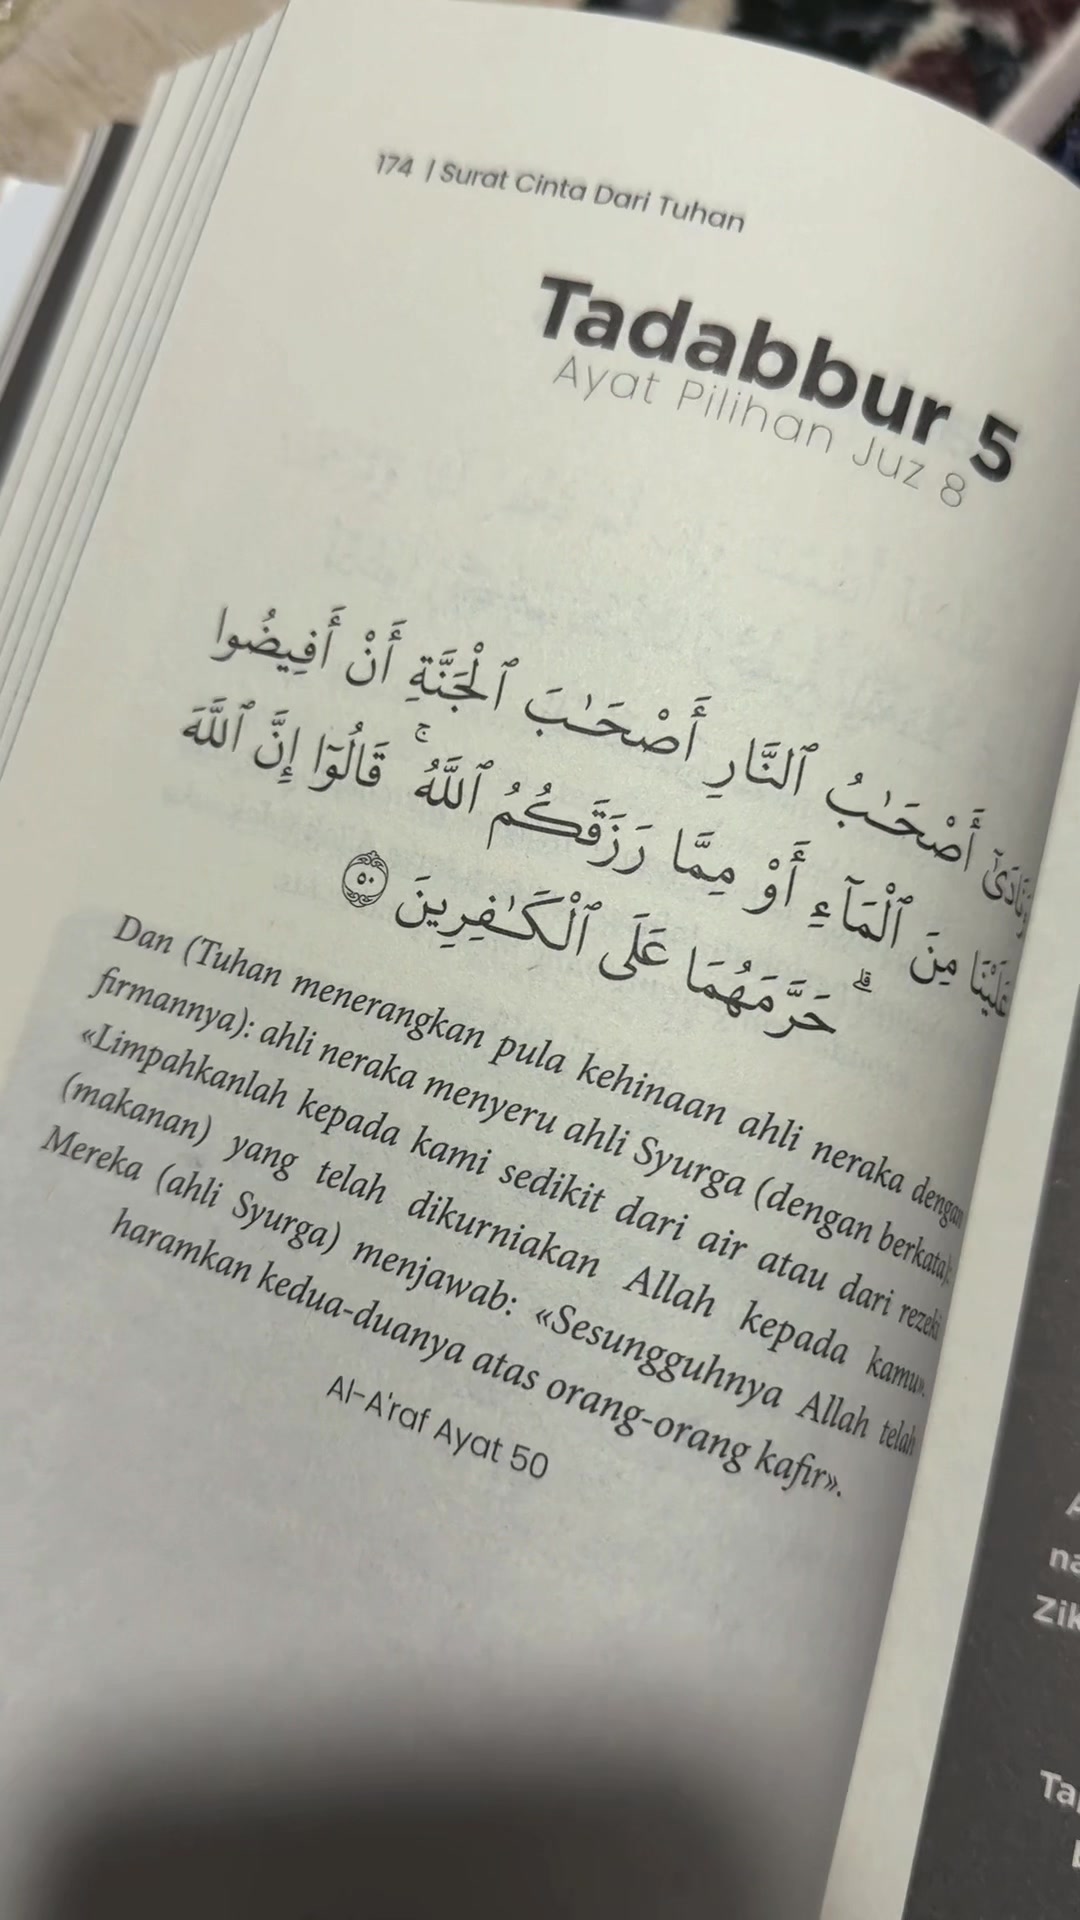 174 | Surat Cinta Dari Tuhan
Tadabbur 5
Ayat Pilihan Juz 8
وَنَادَىٰٓ أَصْحَـٰبُ ٱلنَّارِ أَصْحَـٰبَ ٱلْجَنَّةِ أَنْ أَفِيضُوا
عَلَيْنَا مِنَ ٱلْمَآءِ أَوْ مِمَّا رَزَقَكُمُ ٱللَّهُ ۚ قَالُوٓا إِنَّ ٱللَّهَ
حَرَّمَهُمَا عَلَى ٱلْكَـٰفِرِينَ ۝٥٠
Dan (Tuhan menerangkan pula kehinaan ahli neraka dengan
firmannya): ahli neraka menyeru ahli Syurga (dengan berkata):
«Limpahkanlah kepada kami sedikit dari air atau dari rezeki
(makanan) yang telah dikurniakan Allah kepada kamu».
Mereka (ahli Syurga) menjawab: «Sesungguhnya Allah telah
haramkan kedua-duanya atas orang-orang kafir».
Al-A'raf Ayat 50
Zik
Ta